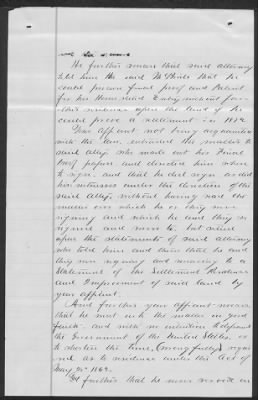 He further swears that said attorney
told him the said McBride that he
could procure final proof and Patent
for his Homestead Entry without fur-
ther residence upon the land if he
could prove a settlement in 1872
Your Affiant not being acquainted
with the law, entrusted the matter to
said atty. who made out his Final
Proof papers and directed him where
to sign, and that he did sign as did
his witnesses under the direction of the
said Atty. without having read the
matter over which he or they were
signing and which he and they so
signed and swore to, but relied
upon the statements of said attorney
who told him and them that he and
they were signing and swearing to a
Statement of his Settlement Residence
and Improvement of said land by
your affiant.
And further your affiant swears
that he went into the matter in good
faith, and with no intention to defraud
the Government of the United States, or
to shorten the time, (wrongfully) requi-
red as to residence under the Act of
May 20th 1862.
And further that he now resides on